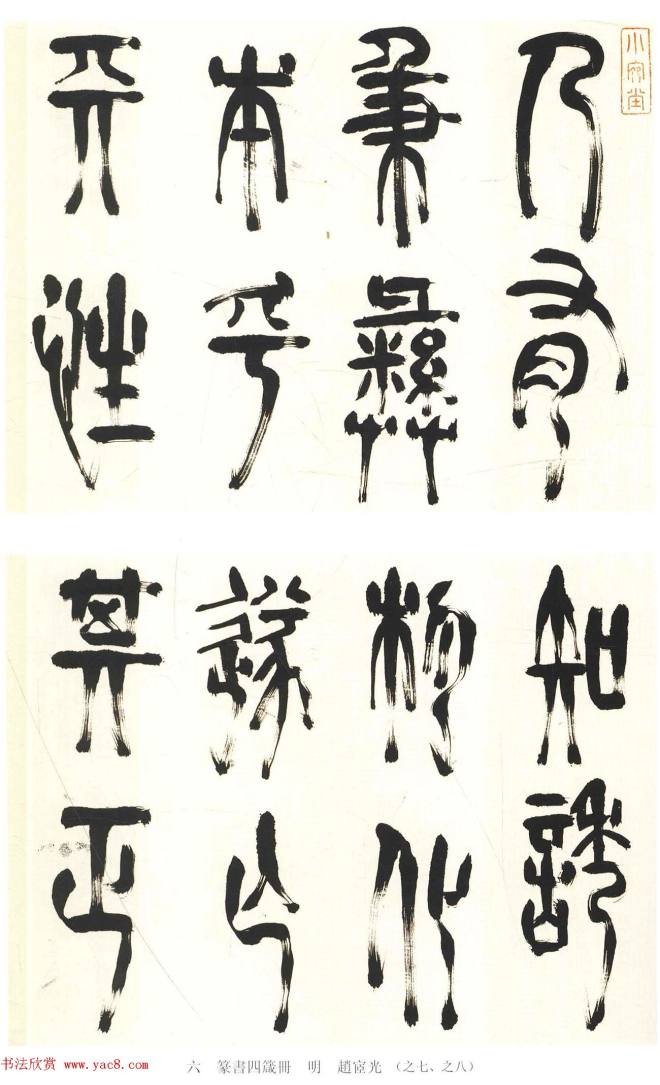 小宛堂
人有
秉彝
本乎
天性
知誘
物化
遂亡
其正
六 篆書四箴冊 明 趙宧光 (之七、之八)
书法欣赏 www.yac8.com